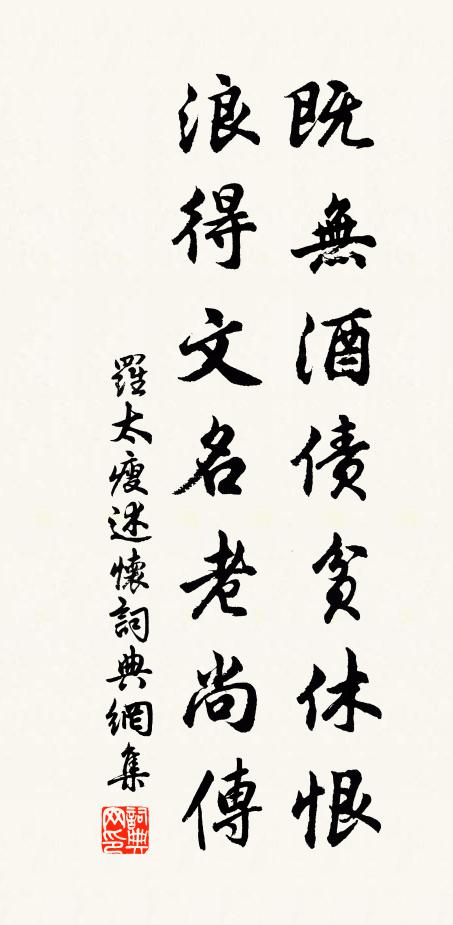 既無酒債貧休恨
浪得文名老尚傳
羅太瘦述懷詞典網集
詞典网印